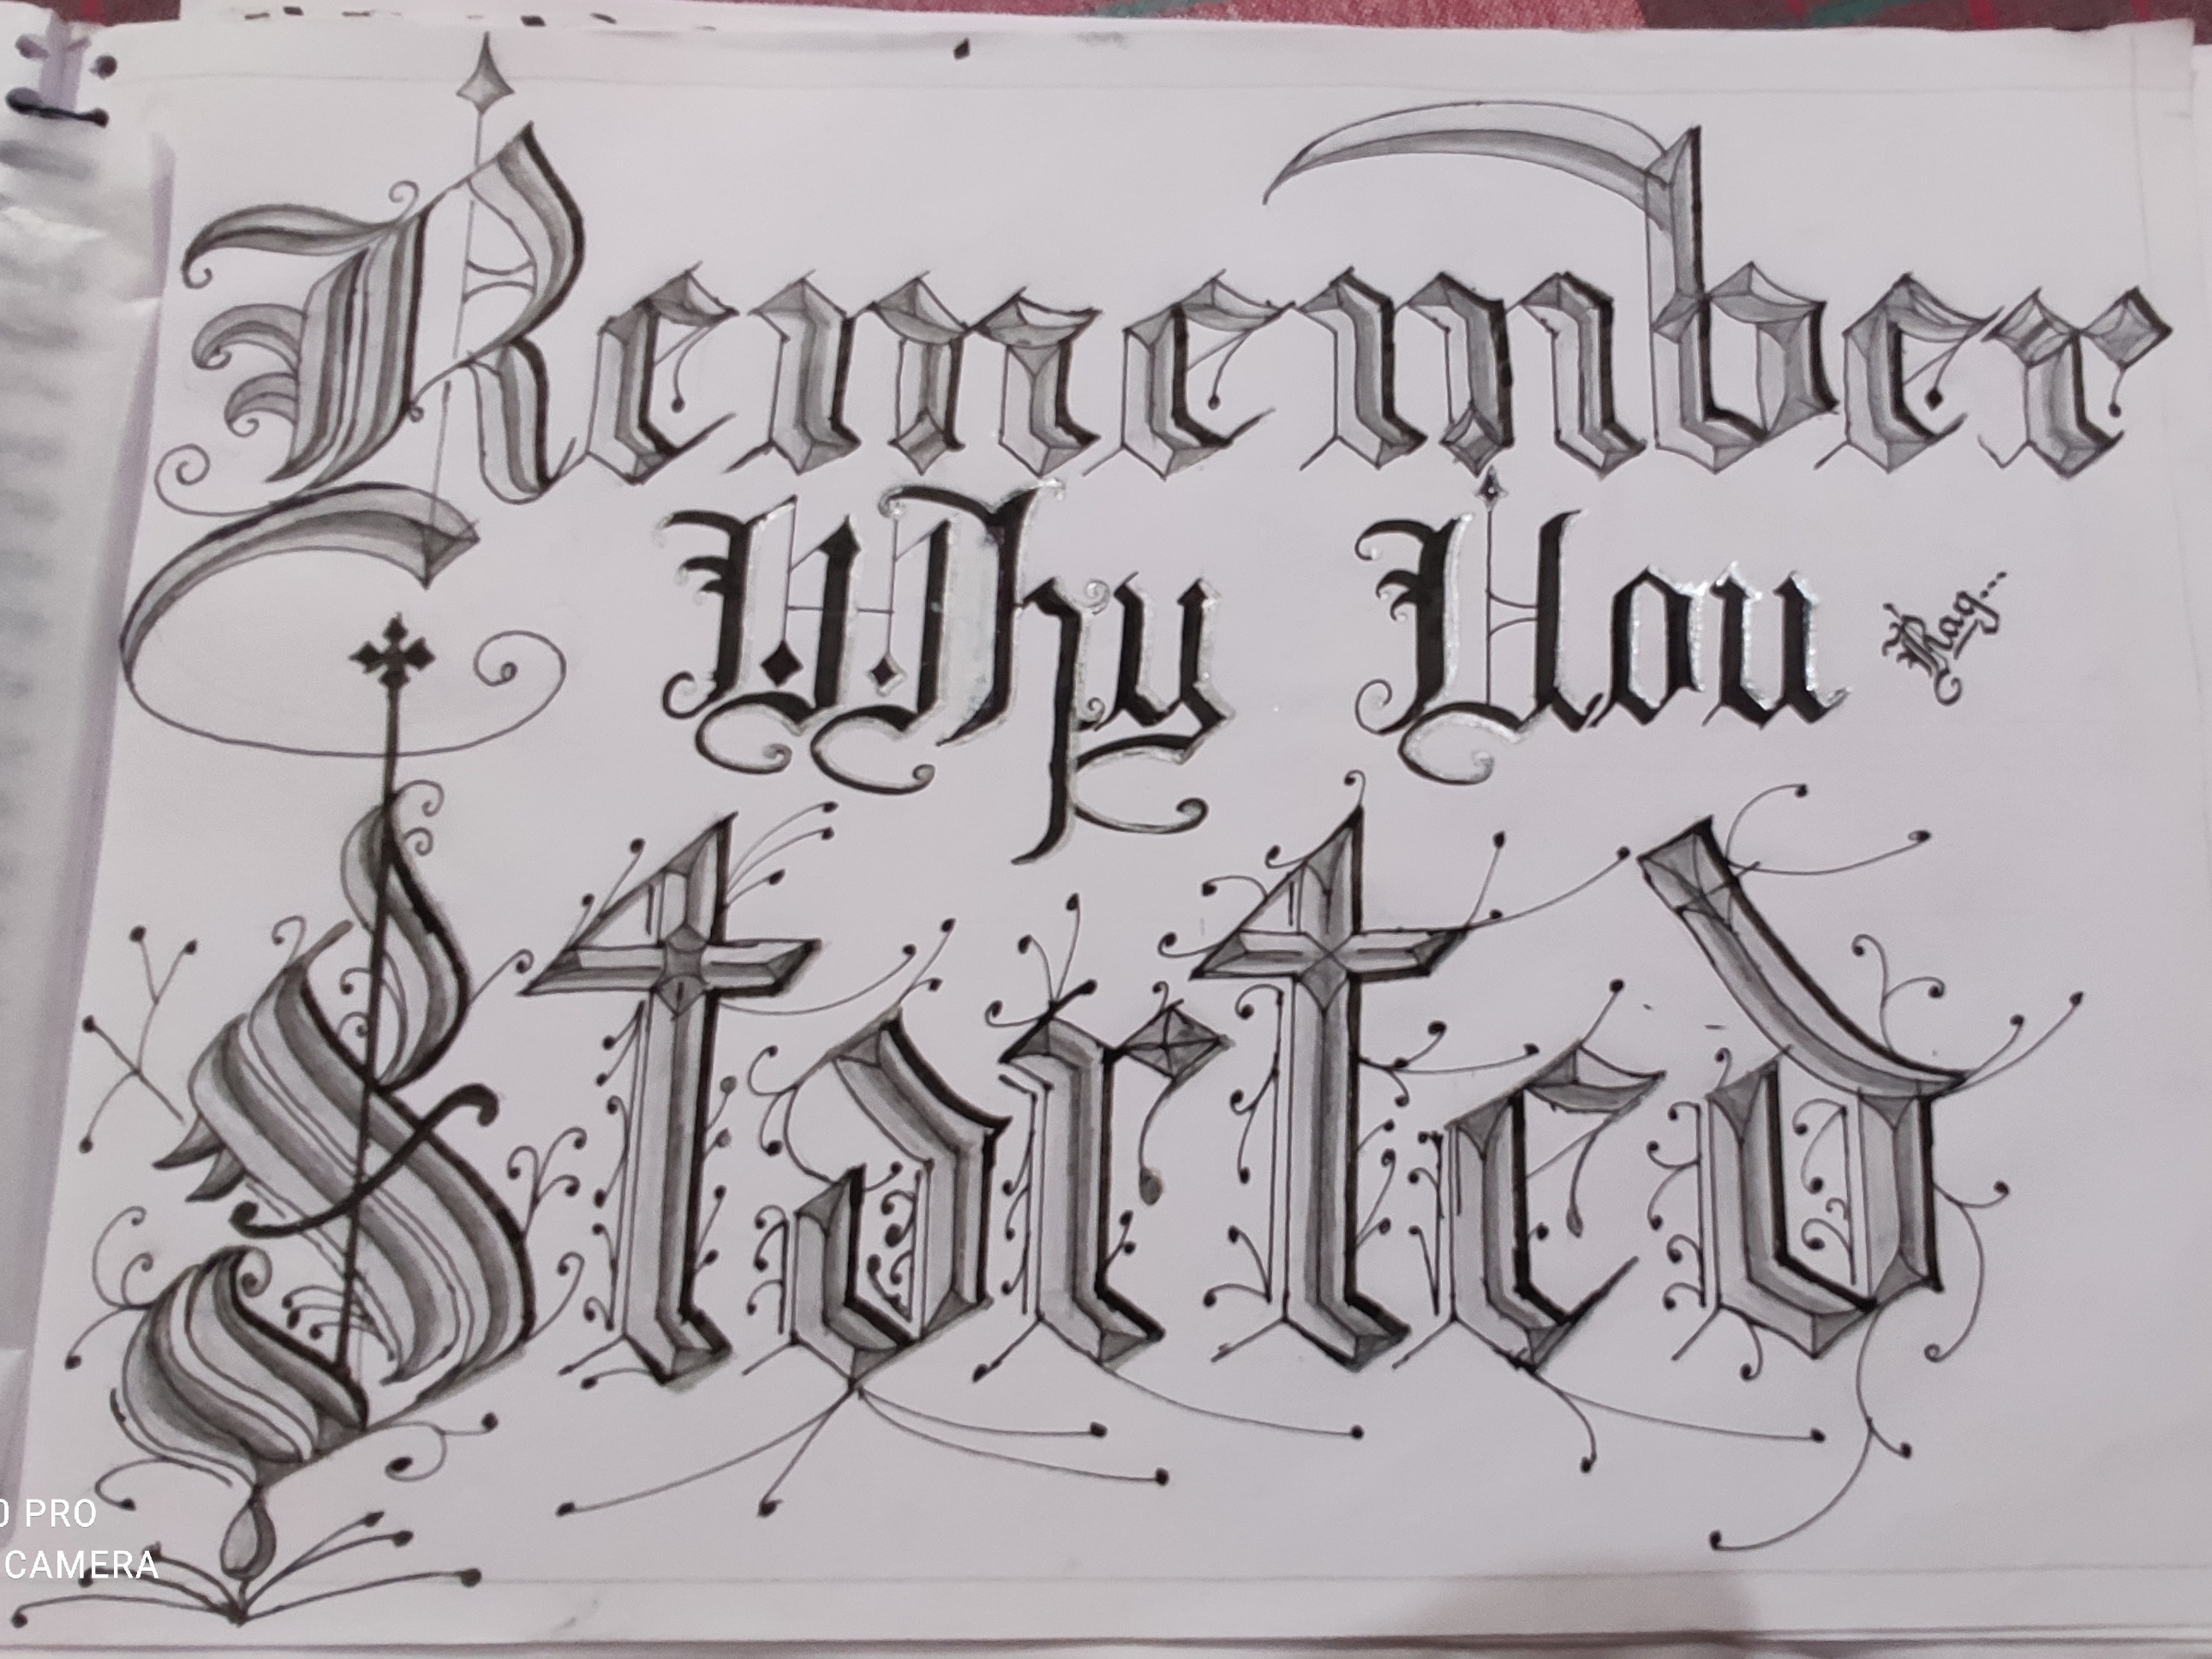 Remember
Why You
Rag...
Started
0 PRO
CAMERA